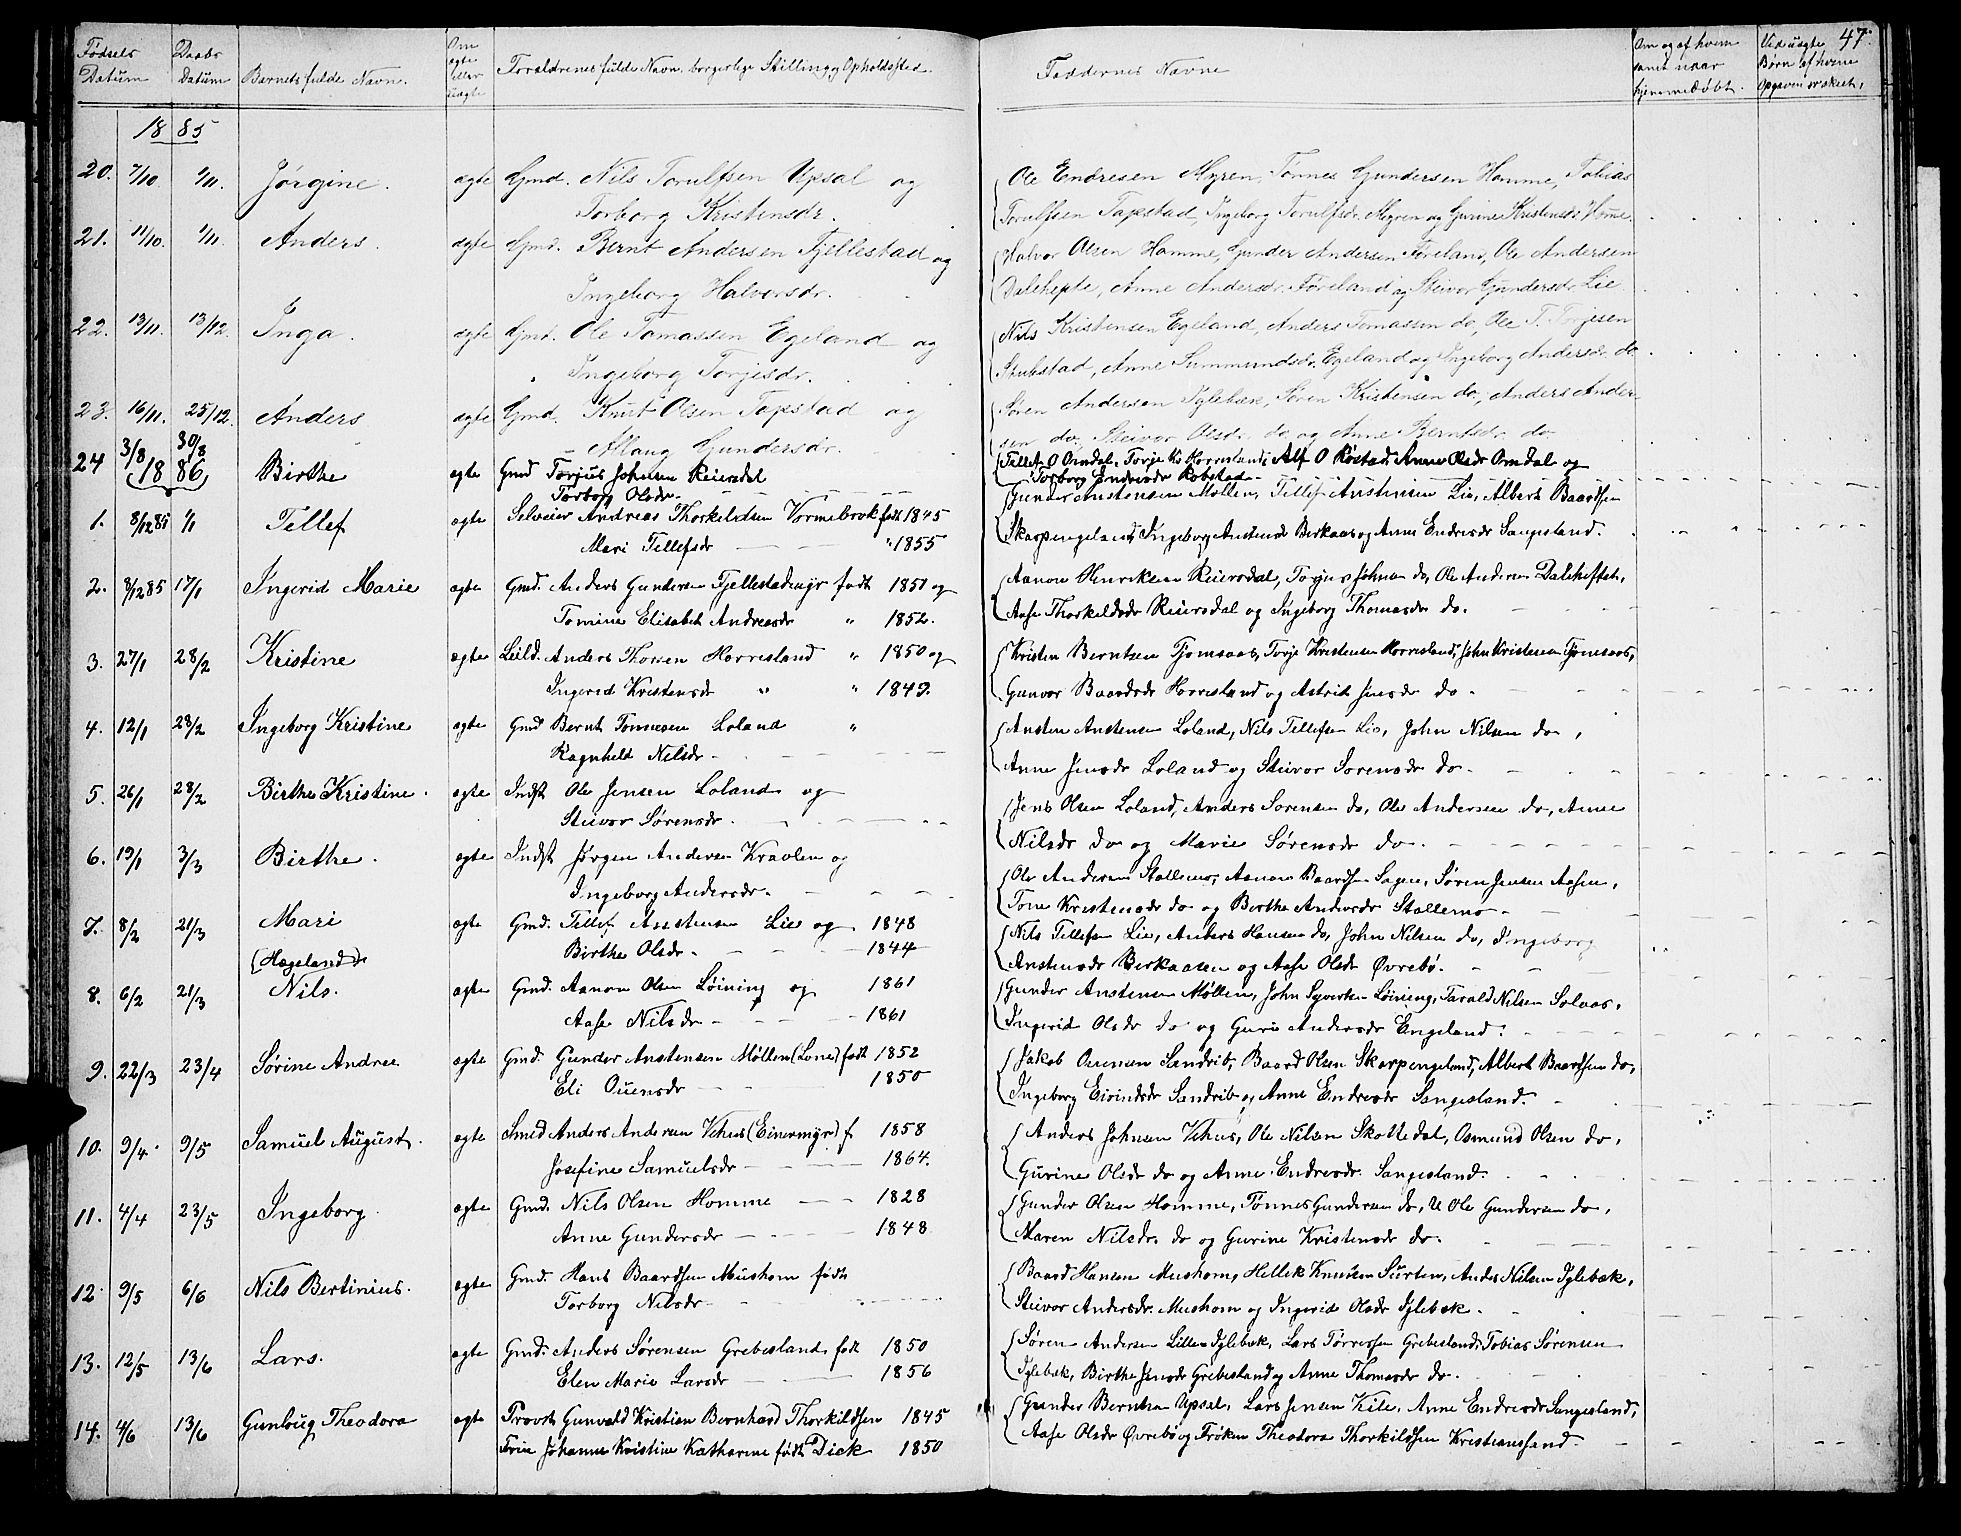 47.
Fødsels Datum
Daabs Datum
Barnets fulde Navn.
Om ægte eller uægte
Forældrenes fulde Navn, borgerlige Stilling og Opholdssted.
Faddernes Navne
Om og af hvem samt naar hjemmedøbt.
Ved uægte Børn af hvem Opgaven er skeet.
1885
20. 7/10 1/11. Jørgine. ægte Gmd. Nils Torulfsen Upsal og
Torborg Kristensdr.
Ole Endresen Myren, Tønnes Gundersen Homme, Tobias
Torulfsen Tapstad, Ingeborg Torulfsdr. Myren og Gurine Kristensdr. Homme.
21. 11/10. 1/11. Anders. ægte Gmd. Bernt Andersen Fjellestad og
Ingeborg Halvorsdr.
Halvor Olsen Homme, Gunder Andersen Føreland, Ole Andersen
Dalehefte, Anne Andersdr. Føreland og Steivor Gundersdr. Lie
22. 13/11. 13/12. Inga. ægte Gmd. Ole Tomassen Egeland og
Ingeborg Torjesdr.
Nils Kristensen Egeland, Anders Tomassen do, Ole T. Torjesen
Stubstad, Anne Summundsdr. Egeland og Ingeborg Andersdr. do
23. 16/11. 25/12. Anders ægte Gmd. Knut Olsen Tapstad og
Allaug Gundersdr.
Søren Andersen Iglebæk, Søren Kristensen do, Anders Ander-
sen do, Steivor Olsdr. do og Anne Berntsdr. do
24 3/8 30/8 Birthe ægte Gmd Torjus Johnsen Reiersdal
Torborg Olsdr.
Tellef O Omdal, Torje Ks Horrisland, Alf O Røstad, Anne Olsdr Omdal og
Torborg Endresdr Robstad
1886
1. 8/12 85 1/1 Tellef ægte Selveier Andreas Thorkildsen Vormebrok født 1845
Mari Tellefsdr " 1855
Gunder Anstensen Møllen, Tellef Anstensen Lie, Albert Baardsen
Skarpengeland, Ingeborg Anstensdr Birkaas og Anne Endresdr Sangesland.
2. 8/12 85 17/1 Ingerid Marie ægte Gmd. Anders Gundersen Fjellestadmyr født 1851 og
Tomine Elisabet Andreasdr " 1852.
Aanon Henriksen Reiersdal, Torjus Johnsen do, Ole Andersen Daleheften,
Aase Thorkildsdr Reiersdal og Ingeborg Thomasdr do.
3. 27/1 28/2 Kristine ægte Leild. Anders Thorsen Horrisland " 1850 og
Ingerid Kristensdr " " 1849.
Kristen Berntsen Tjomsaas, Torje Kristensen Horrisland, John Kristensen Tjomsaas,
Gunvor Baardsdr Horrisland og Astrid Jensdr do.
4. 12/1 28/2 Ingeborg Kristine ægte Gmd Bernt Tønnesen Loland "
Ragnhild Nilsdr
Ansten Anstensen Loland, Nils Tellefsen Lie, John Nilsen do,
Anne Jensdr Loland og Steivor Sørensdr do.
5. 26/1 28/2 Birthe Kristine. ægte Indst Ole Jensen Loland og
Steivor Sørensdr.
Jens Olsen Loland, Anders Sørensen do, Ole Andersen do, Anne
Nilsdr do og Marie Sørensdr do.
6. 19/1 3/3 Birthe. ægte Indst Jørgen Andersen Kraolen og
Ingeborg Andersdr.
Ole Andersen Stallemo, Aanon Baardsen Sagen, Søren Jensen Aasen,
Tone Kristensdr do og Birthe Andersdr Stallemo.
7. 8/2 21/3 Mari ægte Gmd. Tellef Anstensen Lie og 1848
Birthe Olsdr. 1844
Nils Tellefsen Lie, Anders Hansen do, John Nilsen do, Ingeborg
Anstensdr Birkaasen og Aase Olsdr Øvrebø.
(Hægeland)
8. 6/2 21/3 Nils. ægte Gmd. Aanon Olsen Løining og 1861
Aase Nilsdr 1861
Gunder Anstensen Møllen, John Syvertsen Løining, Tarald Nilsen Solaas,
Ingerid Olsdr do og Guri Andersdr Engeland.
9. 22/3 23/4 Sørine Andrea ægte Gmd. Gunder Anstensen Møllen (Lone) født 1852
Eli Ouensdr 1850
Jakob Ouensen Sandrib, Baard Olsen Skarpengeland, Albert Baardsen do,
Ingeborg Eivindsdr Sandrib og Anne Endresdr Sangesland.
10. 9/4 9/5 Samuel August. ægte Smed Anders Andersen Vehus (Einermyr) f 1858
Josefine Samuelsdr 1864.
Anders Johnsen Vehus, Ole Nilsen Skottedal, Osmund Olsen do,
Gurine Olsdr do og Anne Endresdr Sangesland.
11. 4/4 23/5 Ingeborg. ægte Gmd. Nils Olsen Homme 1828
Anne Gundersdr 1848
Gunder Olsen Homme, Tønnes Gundersen do, Ole Gundersen do,
Maren Nilsdr. do og Gurine Kristensdr do.
12 9/5 6/6 Nils Bertinius. ægte Gmd. Hans Baardsen Mushom født
Torborg Nilsdr
Baard Hansen Mushom, Hellik Knutsen Surten, Anders Nilsen Iglebæk,
Steivor Andersdr. Mushom og Ingerid Olsdr Iglebæk.
13. 12/5 13/6 Lars. ægte Gmd. Anders Sørensen Grebesland født 1850
Elen Marie Larsdr 1856
Søren Andersen Lille Iglebæk, Lars Tørresen Grebesland, Tobias Sørensen
Iglebæk, Birthe Jensdr Grebesland og Anne Thomasdr do.
14. 4/6 13/6 Gunloug Theodora ægte Provst Gunvald Kristian Bernhard Thorkildsen 1845
Frue Johanne Kristine Katharine født Dick 1850
Gunder Berntsen Upsal, Lars Jensen Kile, Anne Endresdr Sangesland,
Aase Olsdr Øvrebø og Frøken Theodora Thorkildsen Kristianssand.